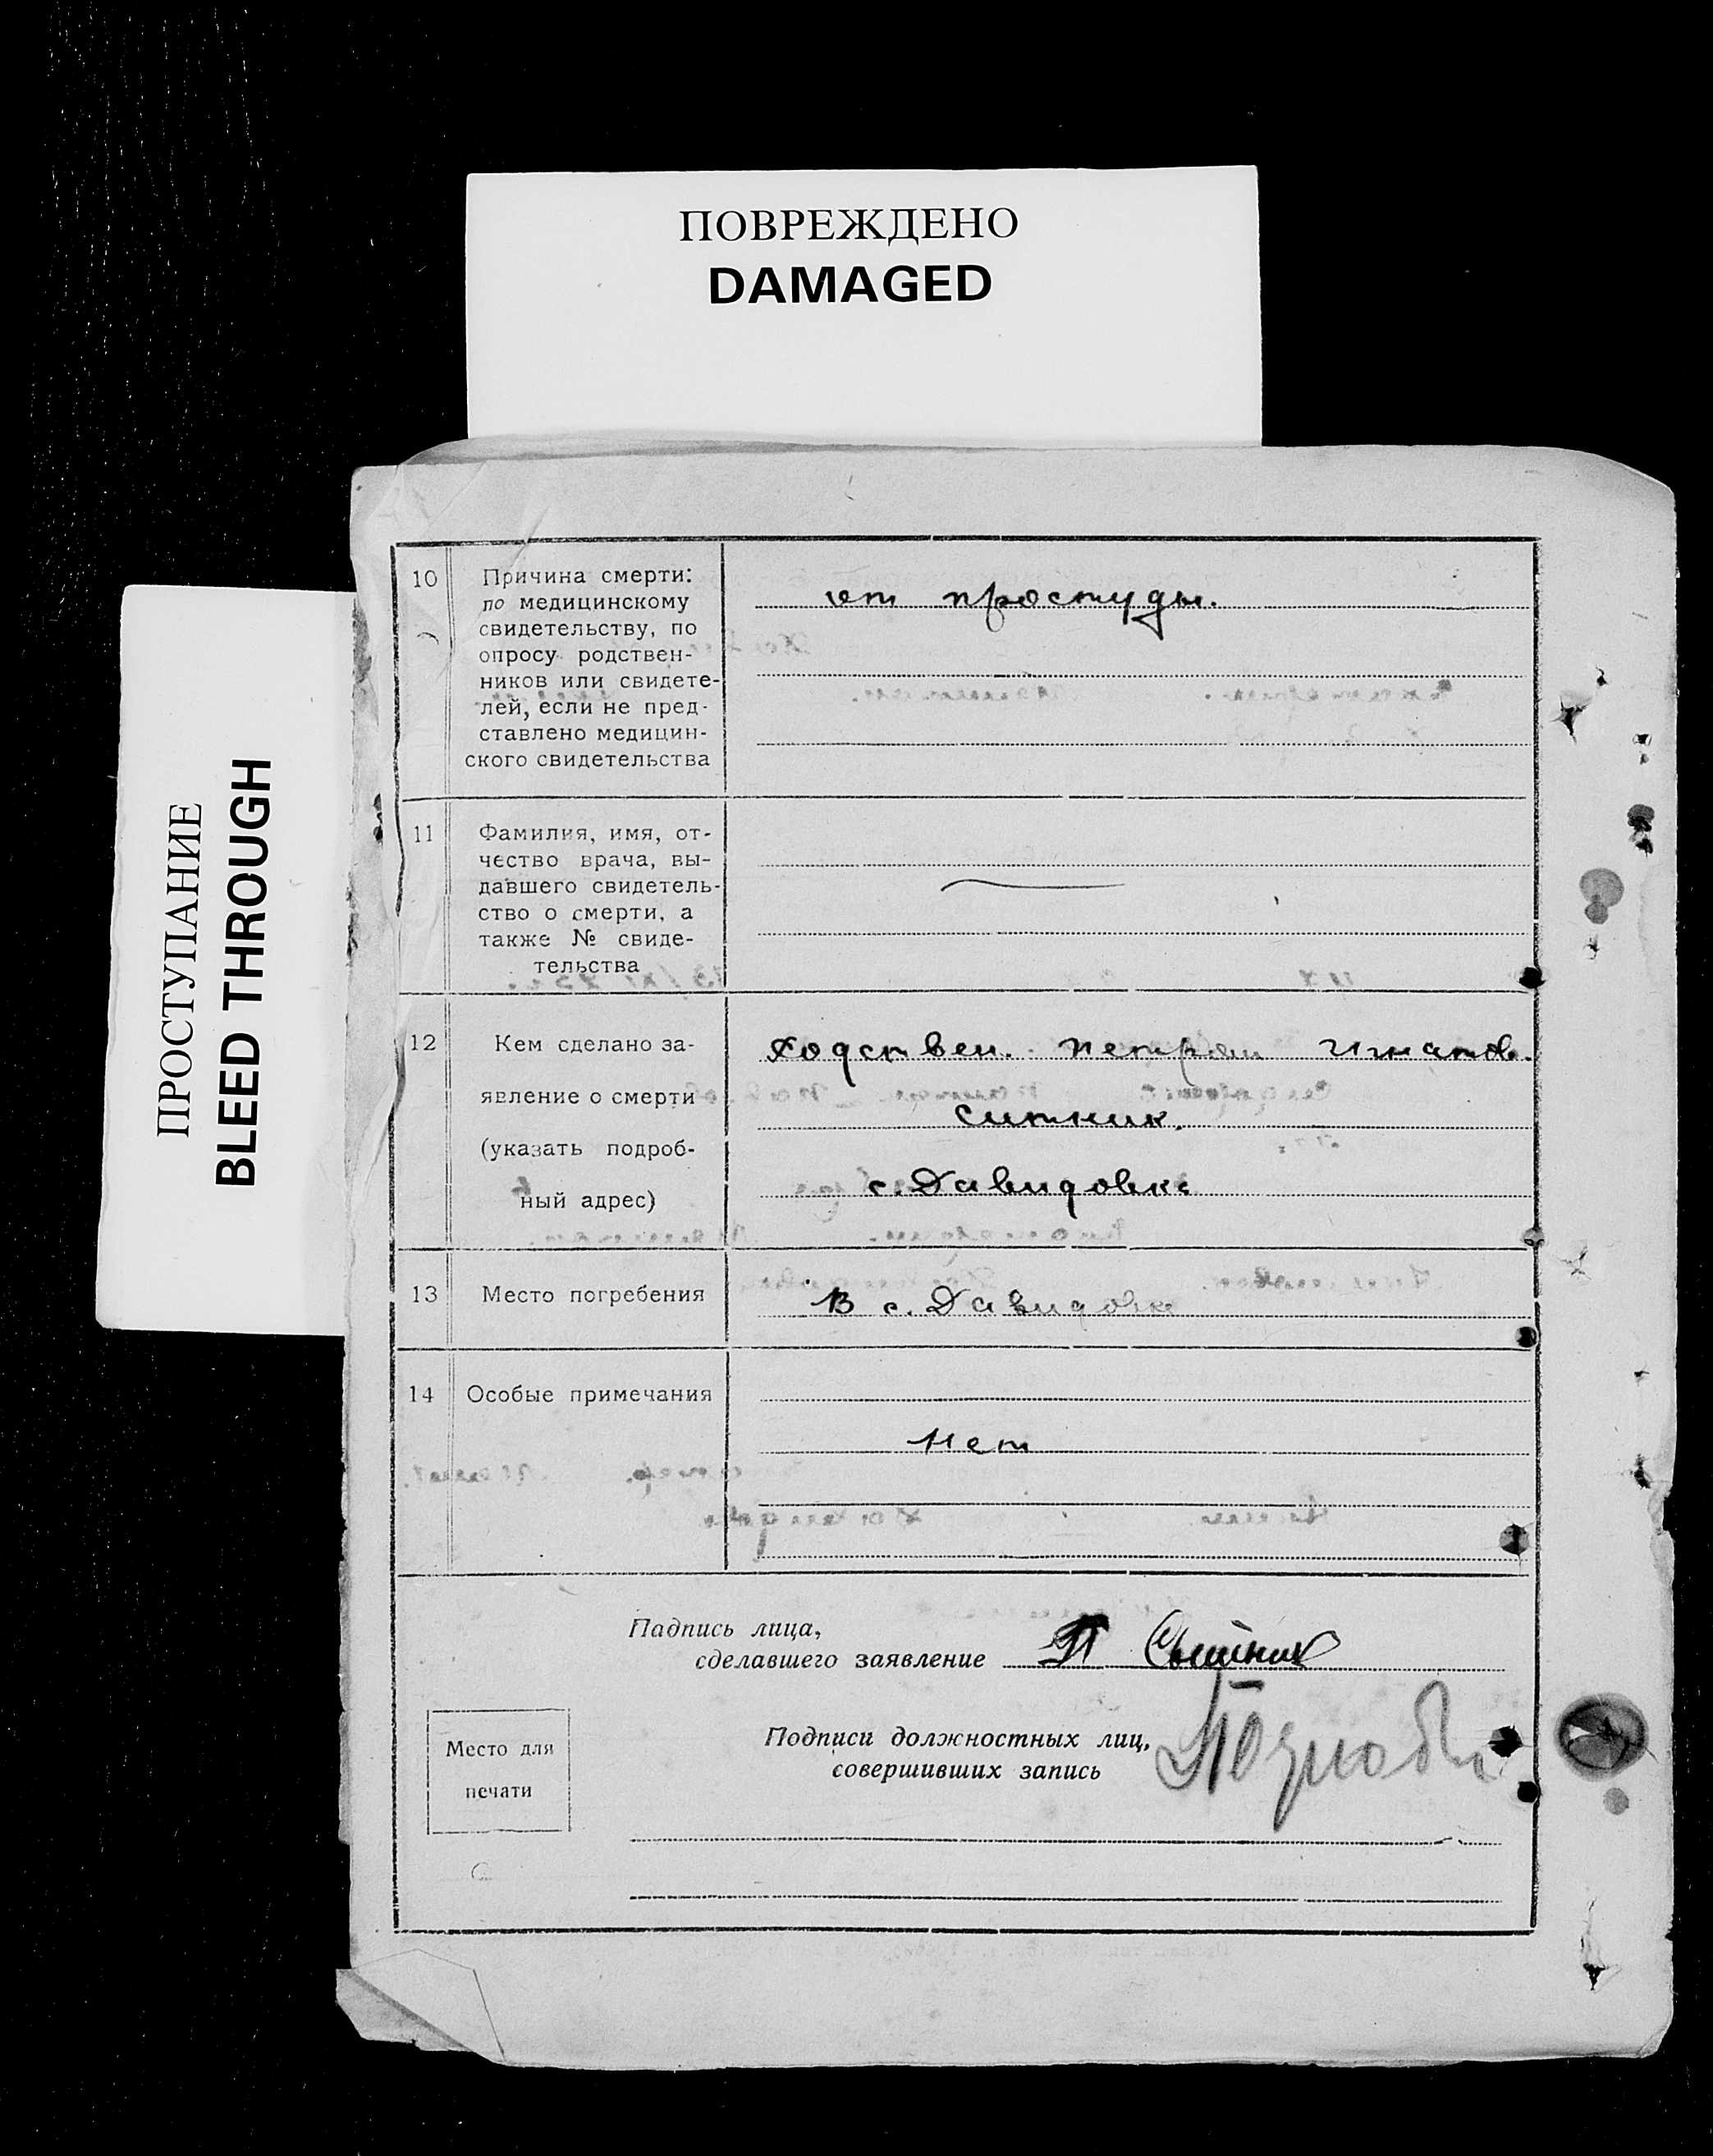 ПОВРЕЖДЕНО
DAMAGED
ПРОСТУПАНИЕ
BLEED THROUGH
10
Причина смерти:
по медицинскому
свидетельству, по
опросу родствен-
ников или свидете-
лей, если не пред-
ставлено медицин-
ского свидетельства
от простуды.
11
Фамилия, имя, от-
чество врача, вы-
давшего свидетель-
ство о смерти, а
также № свиде-
тельства
12
Кем сделано за-
явление о смерти
(указать подроб-
ный адрес)
Родствен. Петром Игнатов.
Ситник.
с. Давидовка
13
Место погребения
В с. Давидовке
14
Особые примечания
Нет
Падпись лица,
сделавшего заявление П Сытник
Подписи должностных лиц,
совершивших запись
Место для
печати